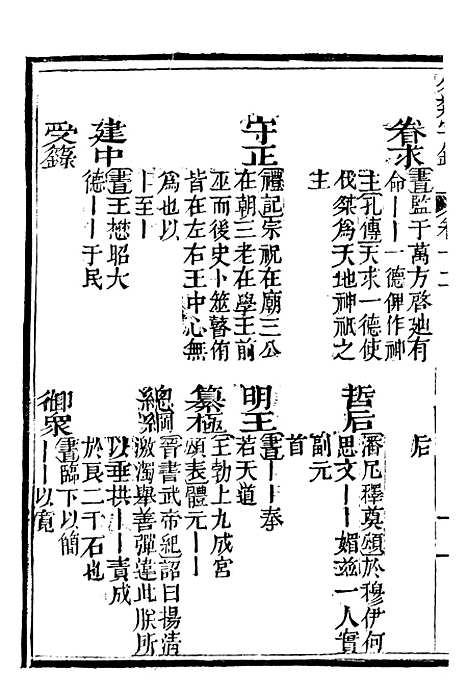 眷求
書監于萬方啓迪有
命丨丨一德俾作神
主孔傳天求一德使
伐桀為天地神祇之
主
守正
禮記宗祝在廟三公
在朝三老在學王前
巫而後史卜筮瞽侑
皆在左右王中心無
為也以
丨至丨
建中
書王懋昭大
德丨丨于民
受籙
后
哲后
潘尼釋奠頌於穆伊何
思文丨丨媚茲一人實
副元
首
明王
書丨丨奉
若天道
纂極
王勃上九成宮
頌表體元丨丨
總綱
晉書武帝紀詔曰揚清
激濁舉善彈違此朕所
以垂拱丨丨責成
於良二千石也
御衆
書臨下以簡
丨丨以寬